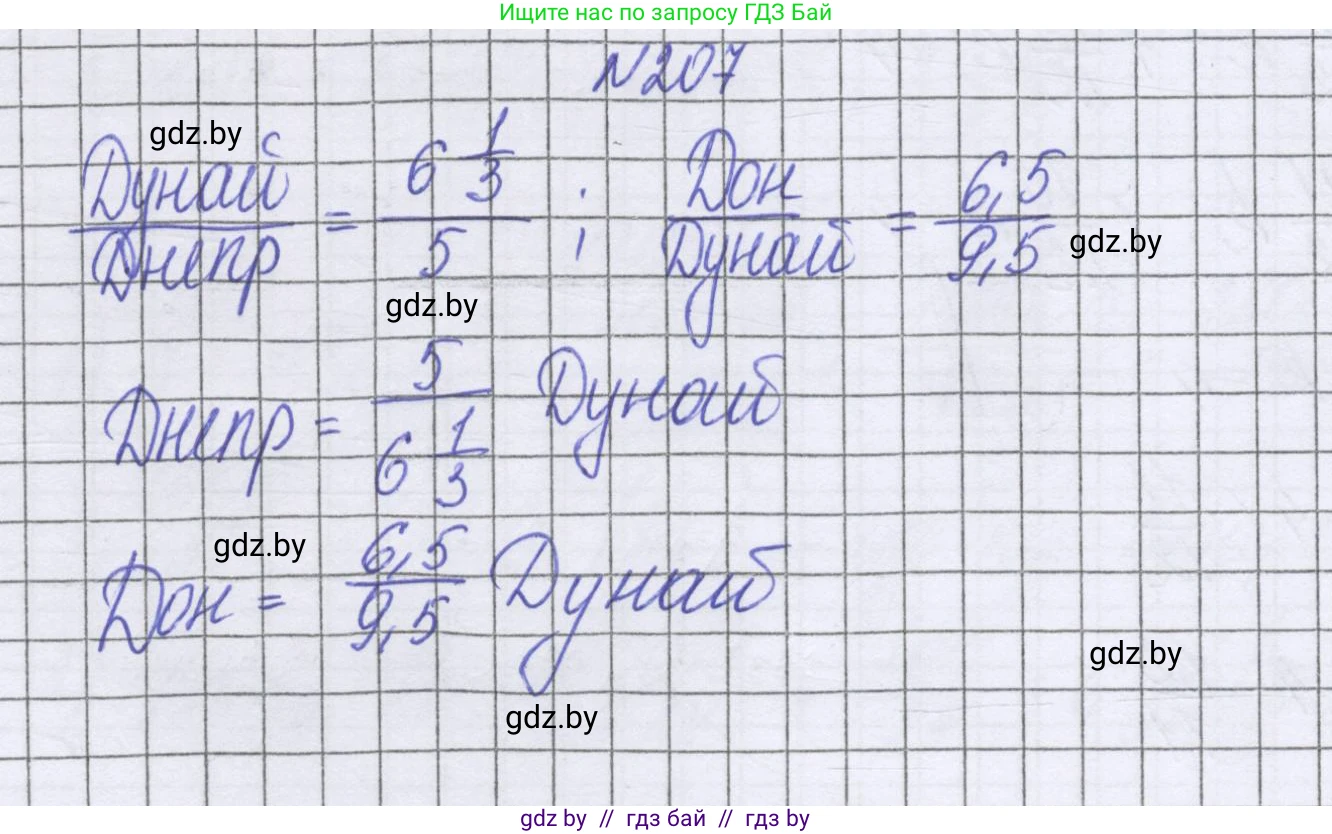 Ищите нас по запросу ГДЗ Бай
№207
gdz.by
Дунай/Днепр = 6 1/3 / 5 ; Дон/Дунай = 6,5/9,5
gdz.by
gdz.by
Днепр = 5 / 6 1/3 Дунай
gdz.by
Дон = 6,5/9,5 Дунай
gdz.by
gdz.by
gdz by // гдз бай // гдз by